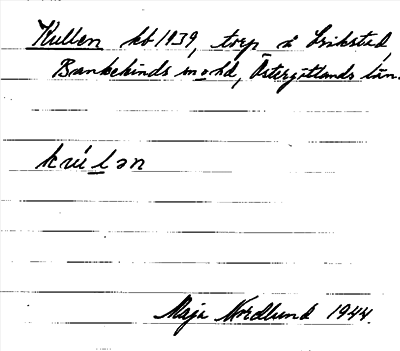 Kullen kb 1939, torp å Erikstad,
Bankekinds sn o hd, Östergötlands län.
Maja Nordlund 1944.